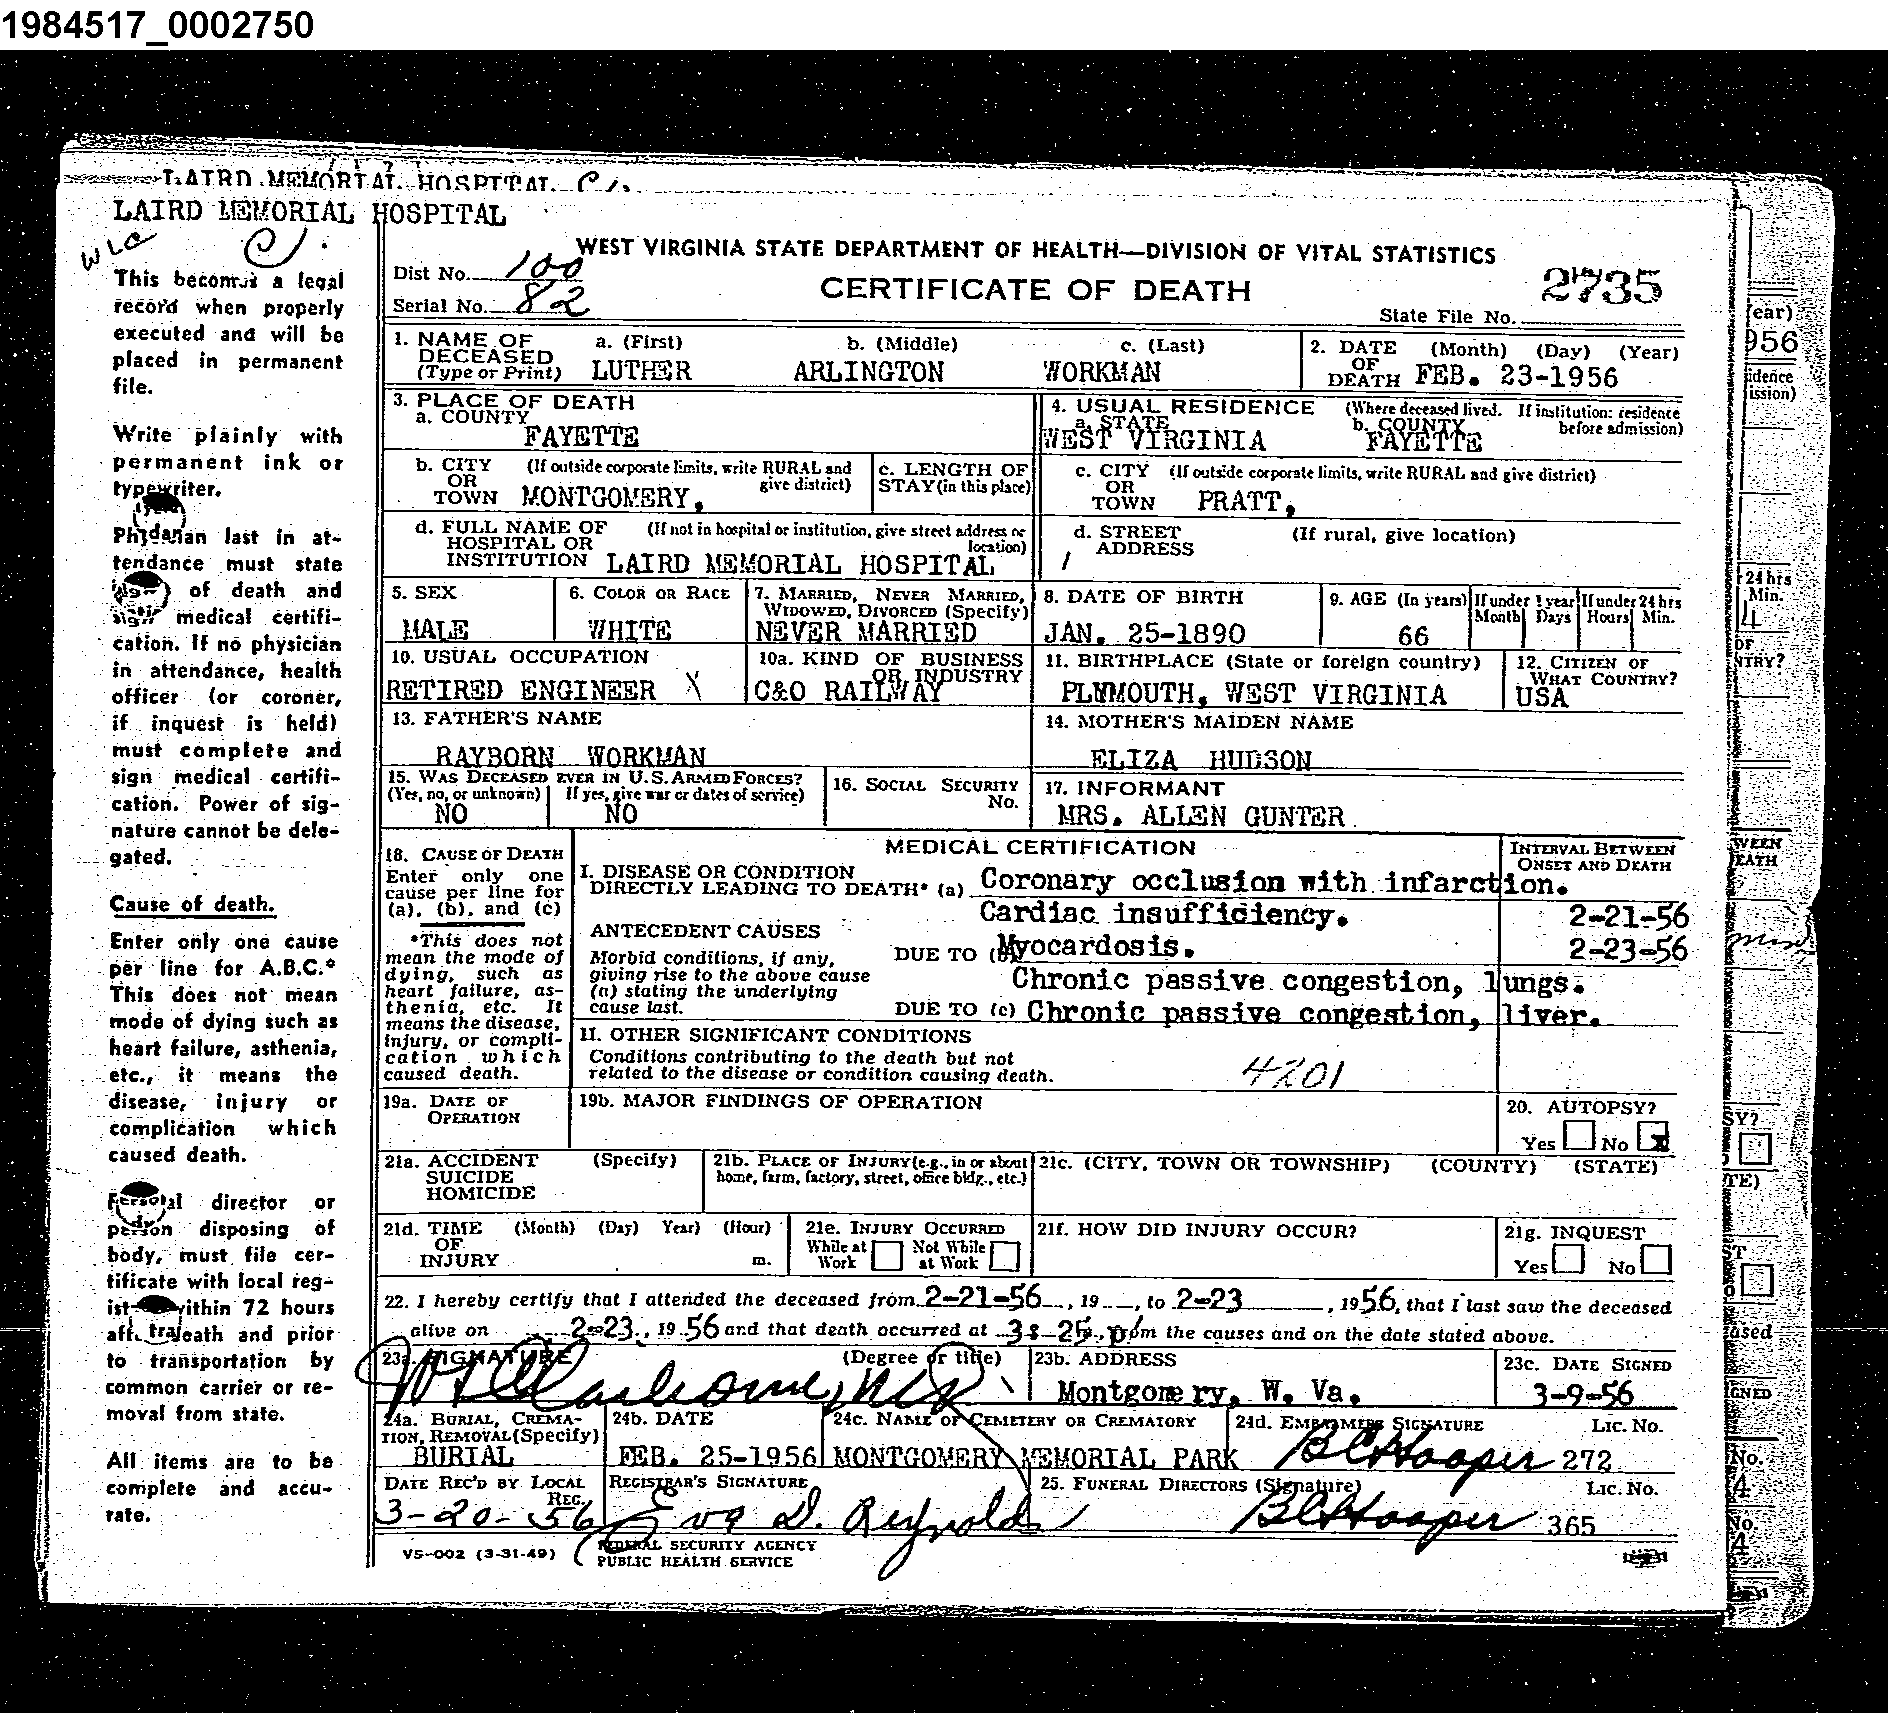 1984517_0002750
LAIRD MEMORIAL HOSPITAL C
LAIRD MEMORIAL HOSPITAL
WLC CJ.
WEST VIRGINIA STATE DEPARTMENT OF HEALTH—DIVISION OF VITAL STATISTICS
Dist No. 100
CERTIFICATE OF DEATH
2735
Serial No. 82
State File No.
This becomes a legal
record when properly
executed and will be
placed in permanent
file.
Write plainly with
permanent ink or
typewriter.
Physician last in at-
tendance must state
of death and
medical certifi-
cation. If no physician
in attendance, health
officer (or coroner,
if inquest is held)
must complete and
sign medical certifi-
cation. Power of sig-
nature cannot be dele-
gated.
Cause of death.
Enter only one cause
per line for A.B.C.*
This does not mean
mode of dying such as
heart failure, asthenia,
etc., it means the
disease, injury or
complication which
caused death.
director or
person disposing of
body, must file cer-
tificate with local reg-
ist within 72 hours
aft death and prior
to transportation by
common carrier or re-
moval from state.
All items are to be
complete and accu-
rate.
1. NAME OF DECEASED (Type or Print) a. (First) b. (Middle) c. (Last)
LUTHER ARLINGTON WORKMAN
2. DATE OF DEATH (Month) (Day) (Year)
FEB. 23-1956
3. PLACE OF DEATH
a. COUNTY
FAYETTE
4. USUAL RESIDENCE (Where deceased lived. If institution: residence before admission)
a. STATE b. COUNTY
WEST VIRGINIA FAYETTE
b. CITY OR TOWN (If outside corporate limits, write RURAL and give district)
MONTGOMERY,
c. LENGTH OF STAY (in this place)
c. CITY OR TOWN (If outside corporate limits, write RURAL and give district)
PRATT,
d. FULL NAME OF HOSPITAL OR INSTITUTION (If not in hospital or institution, give street address or location)
LAIRD MEMORIAL HOSPITAL
d. STREET ADDRESS (If rural, give location)
5. SEX
MALE
6. COLOR OR RACE
WHITE
7. MARRIED, NEVER MARRIED, WIDOWED, DIVORCED (Specify)
NEVER MARRIED
8. DATE OF BIRTH
JAN. 25-1890
9. AGE (In years) If under 1 year Month Days If under 24 hrs Hours Min.
66
10. USUAL OCCUPATION
RETIRED ENGINEER X
10a. KIND OF BUSINESS OR INDUSTRY
C&O RAILWAY
11. BIRTHPLACE (State or foreign country)
PLYMOUTH, WEST VIRGINIA
12. CITIZEN OF WHAT COUNTRY?
USA
13. FATHER'S NAME
RAYBORN WORKMAN
14. MOTHER'S MAIDEN NAME
ELIZA HUDSON
15. WAS DECEASED EVER IN U.S. ARMED FORCES?
(Yes, no, or unknown) If yes, give war or dates of service)
NO NO
16. SOCIAL SECURITY No.
17. INFORMANT
MRS. ALLEN GUNTER
18. CAUSE OF DEATH
Enter only one
cause per line for
(a), (b), and (c)
*This does not
mean the mode of
dying, such as
heart failure, as-
thenia, etc. It
means the disease,
injury, or compli-
cation which
caused death.
MEDICAL CERTIFICATION
INTERVAL BETWEEN ONSET AND DEATH
I. DISEASE OR CONDITION
DIRECTLY LEADING TO DEATH* (a) Coronary occlusion with infarction.
Cardiac insufficiency. 2-21-56
ANTECEDENT CAUSES
Morbid conditions, if any,
giving rise to the above cause
(a) stating the underlying
cause last.
DUE TO (b) Myocardosis. 2-23-56
Chronic passive congestion, lungs.
DUE TO (c) Chronic passive congestion, liver.
II. OTHER SIGNIFICANT CONDITIONS
Conditions contributing to the death but not
related to the disease or condition causing death.
4201
19a. DATE OF OPERATION
19b. MAJOR FINDINGS OF OPERATION
20. AUTOPSY?
Yes No X
21a. ACCIDENT SUICIDE HOMICIDE (Specify)
21b. PLACE OF INJURY (e.g., in or about home, farm, factory, street, office bldg., etc.)
21c. (CITY, TOWN OR TOWNSHIP) (COUNTY) (STATE)
21d. TIME OF INJURY (Month) (Day) Year) (Hour) m.
21e. INJURY OCCURRED
While at Work Not While at Work
21f. HOW DID INJURY OCCUR?
21g. INQUEST
Yes No
22. I hereby certify that I attended the deceased from 2-21-56, 19 , to 2-23, 1956, that I last saw the deceased
alive on 2-23, 19 56 and that death occurred at 3:25 p m., from the causes and on the date stated above.
23a. SIGNATURE (Degree or title)
23b. ADDRESS
Montgomery, W. Va.
23c. DATE SIGNED
3-9-56
24a. BURIAL, CREMA-
TION, REMOVAL (Specify)
BURIAL
24b. DATE
FEB. 25-1956
24c. NAME OF CEMETERY OR CREMATORY
MONTGOMERY MEMORIAL PARK
24d. EMBALMERS SIGNATURE Lic. No.
BC Hooper 272
DATE REC'D BY LOCAL REG.
3-20-56
REGISTRAR'S SIGNATURE
Eva D. Reynolds
25. FUNERAL DIRECTORS (Signature) Lic. No.
BC Hooper 365
VS-002 (3-31-49)
FEDERAL SECURITY AGENCY
PUBLIC HEALTH SERVICE